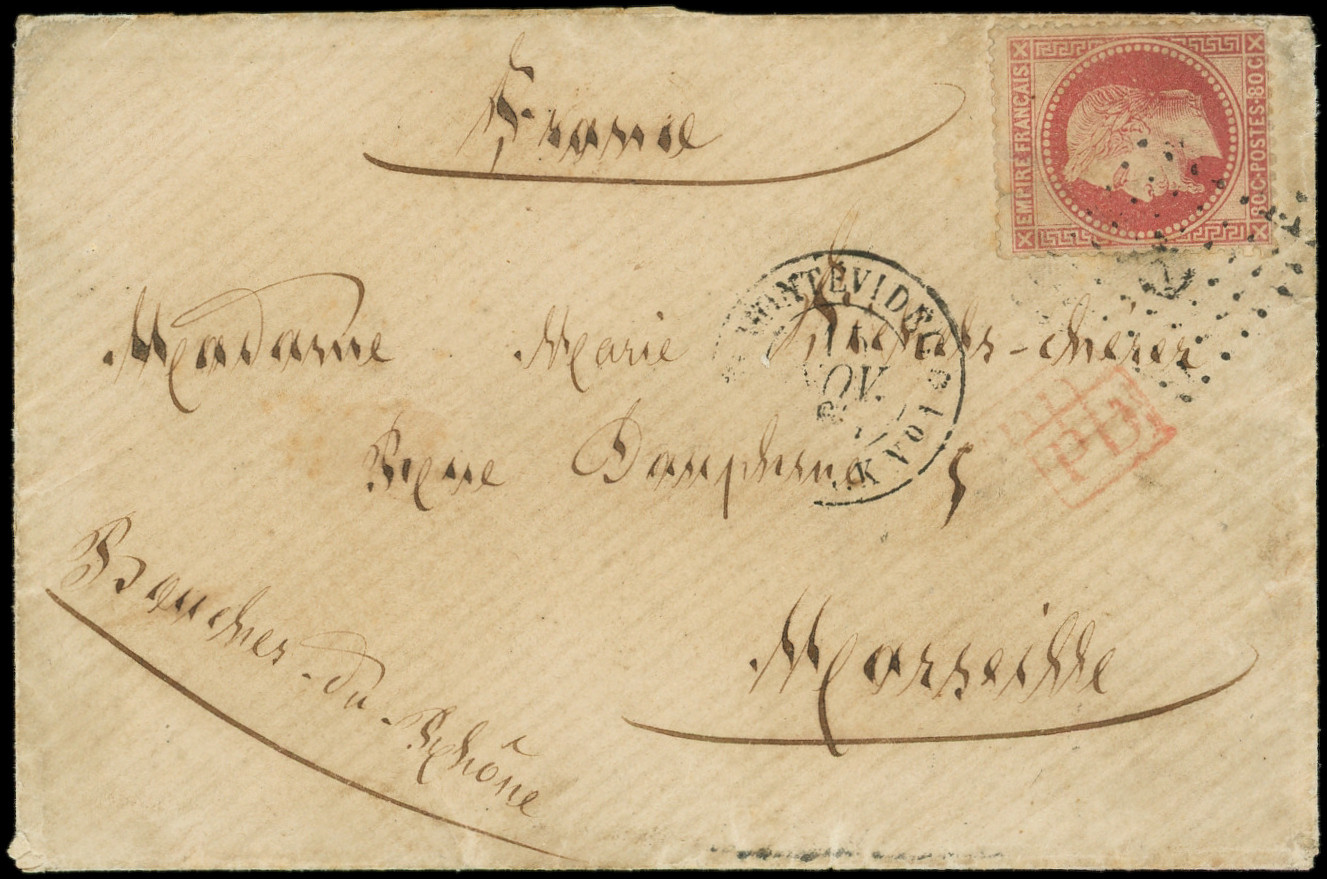 France
EMPIRE FRANÇAIS
80C-POSTES-80C
MONTEVIDEO
NOV.
K No 1
Madame Marie
PD
Rue Dauphine 5
Marseille
Bouches-du-Rhône